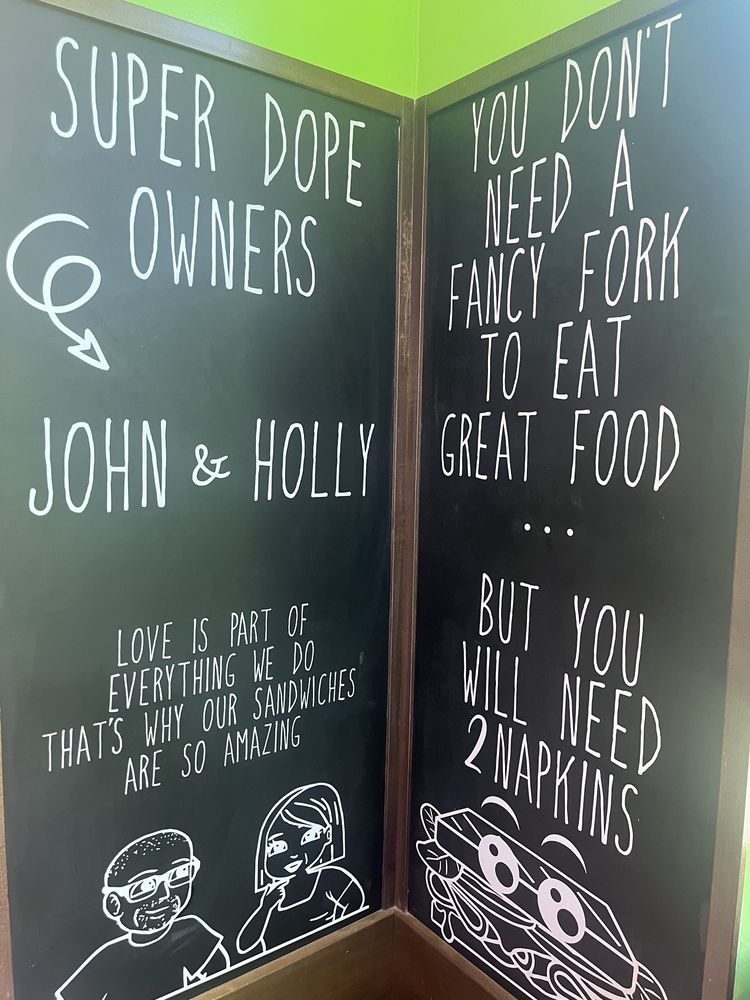 SUPER DOPE
OWNERS
JOHN & HOLLY
LOVE IS PART OF
EVERYTHING WE DO
THAT'S WHY OUR SANDWICHES
ARE SO AMAZING
YOU DON'T
NEED A
FANCY FORK
TO EAT
GREAT FOOD
...
BUT YOU
WILL NEED
2 NAPKINS